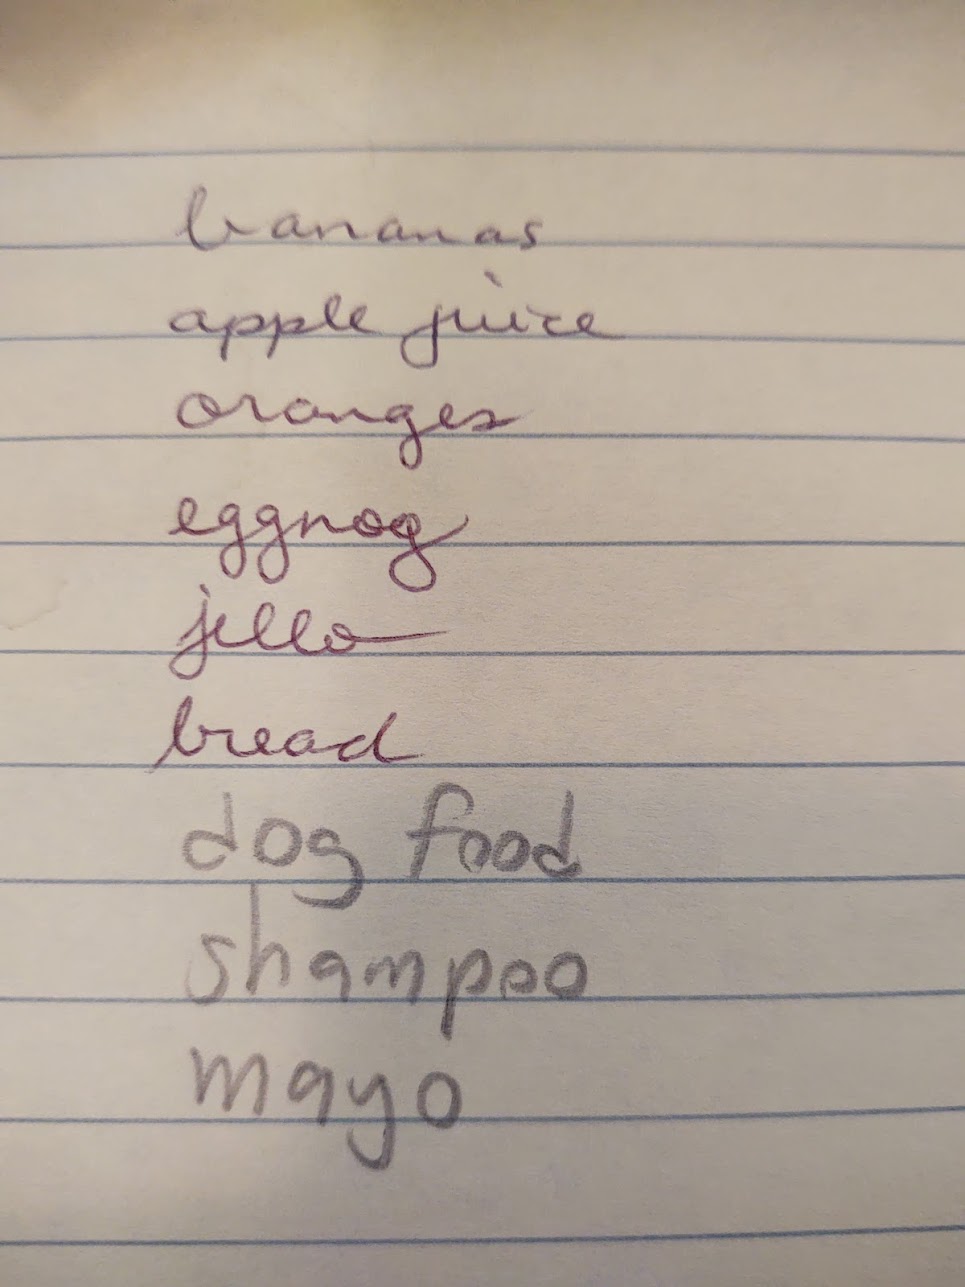 bananas
apple juice
oranges
eggnog
jello
bread
dog food
shampoo
mayo